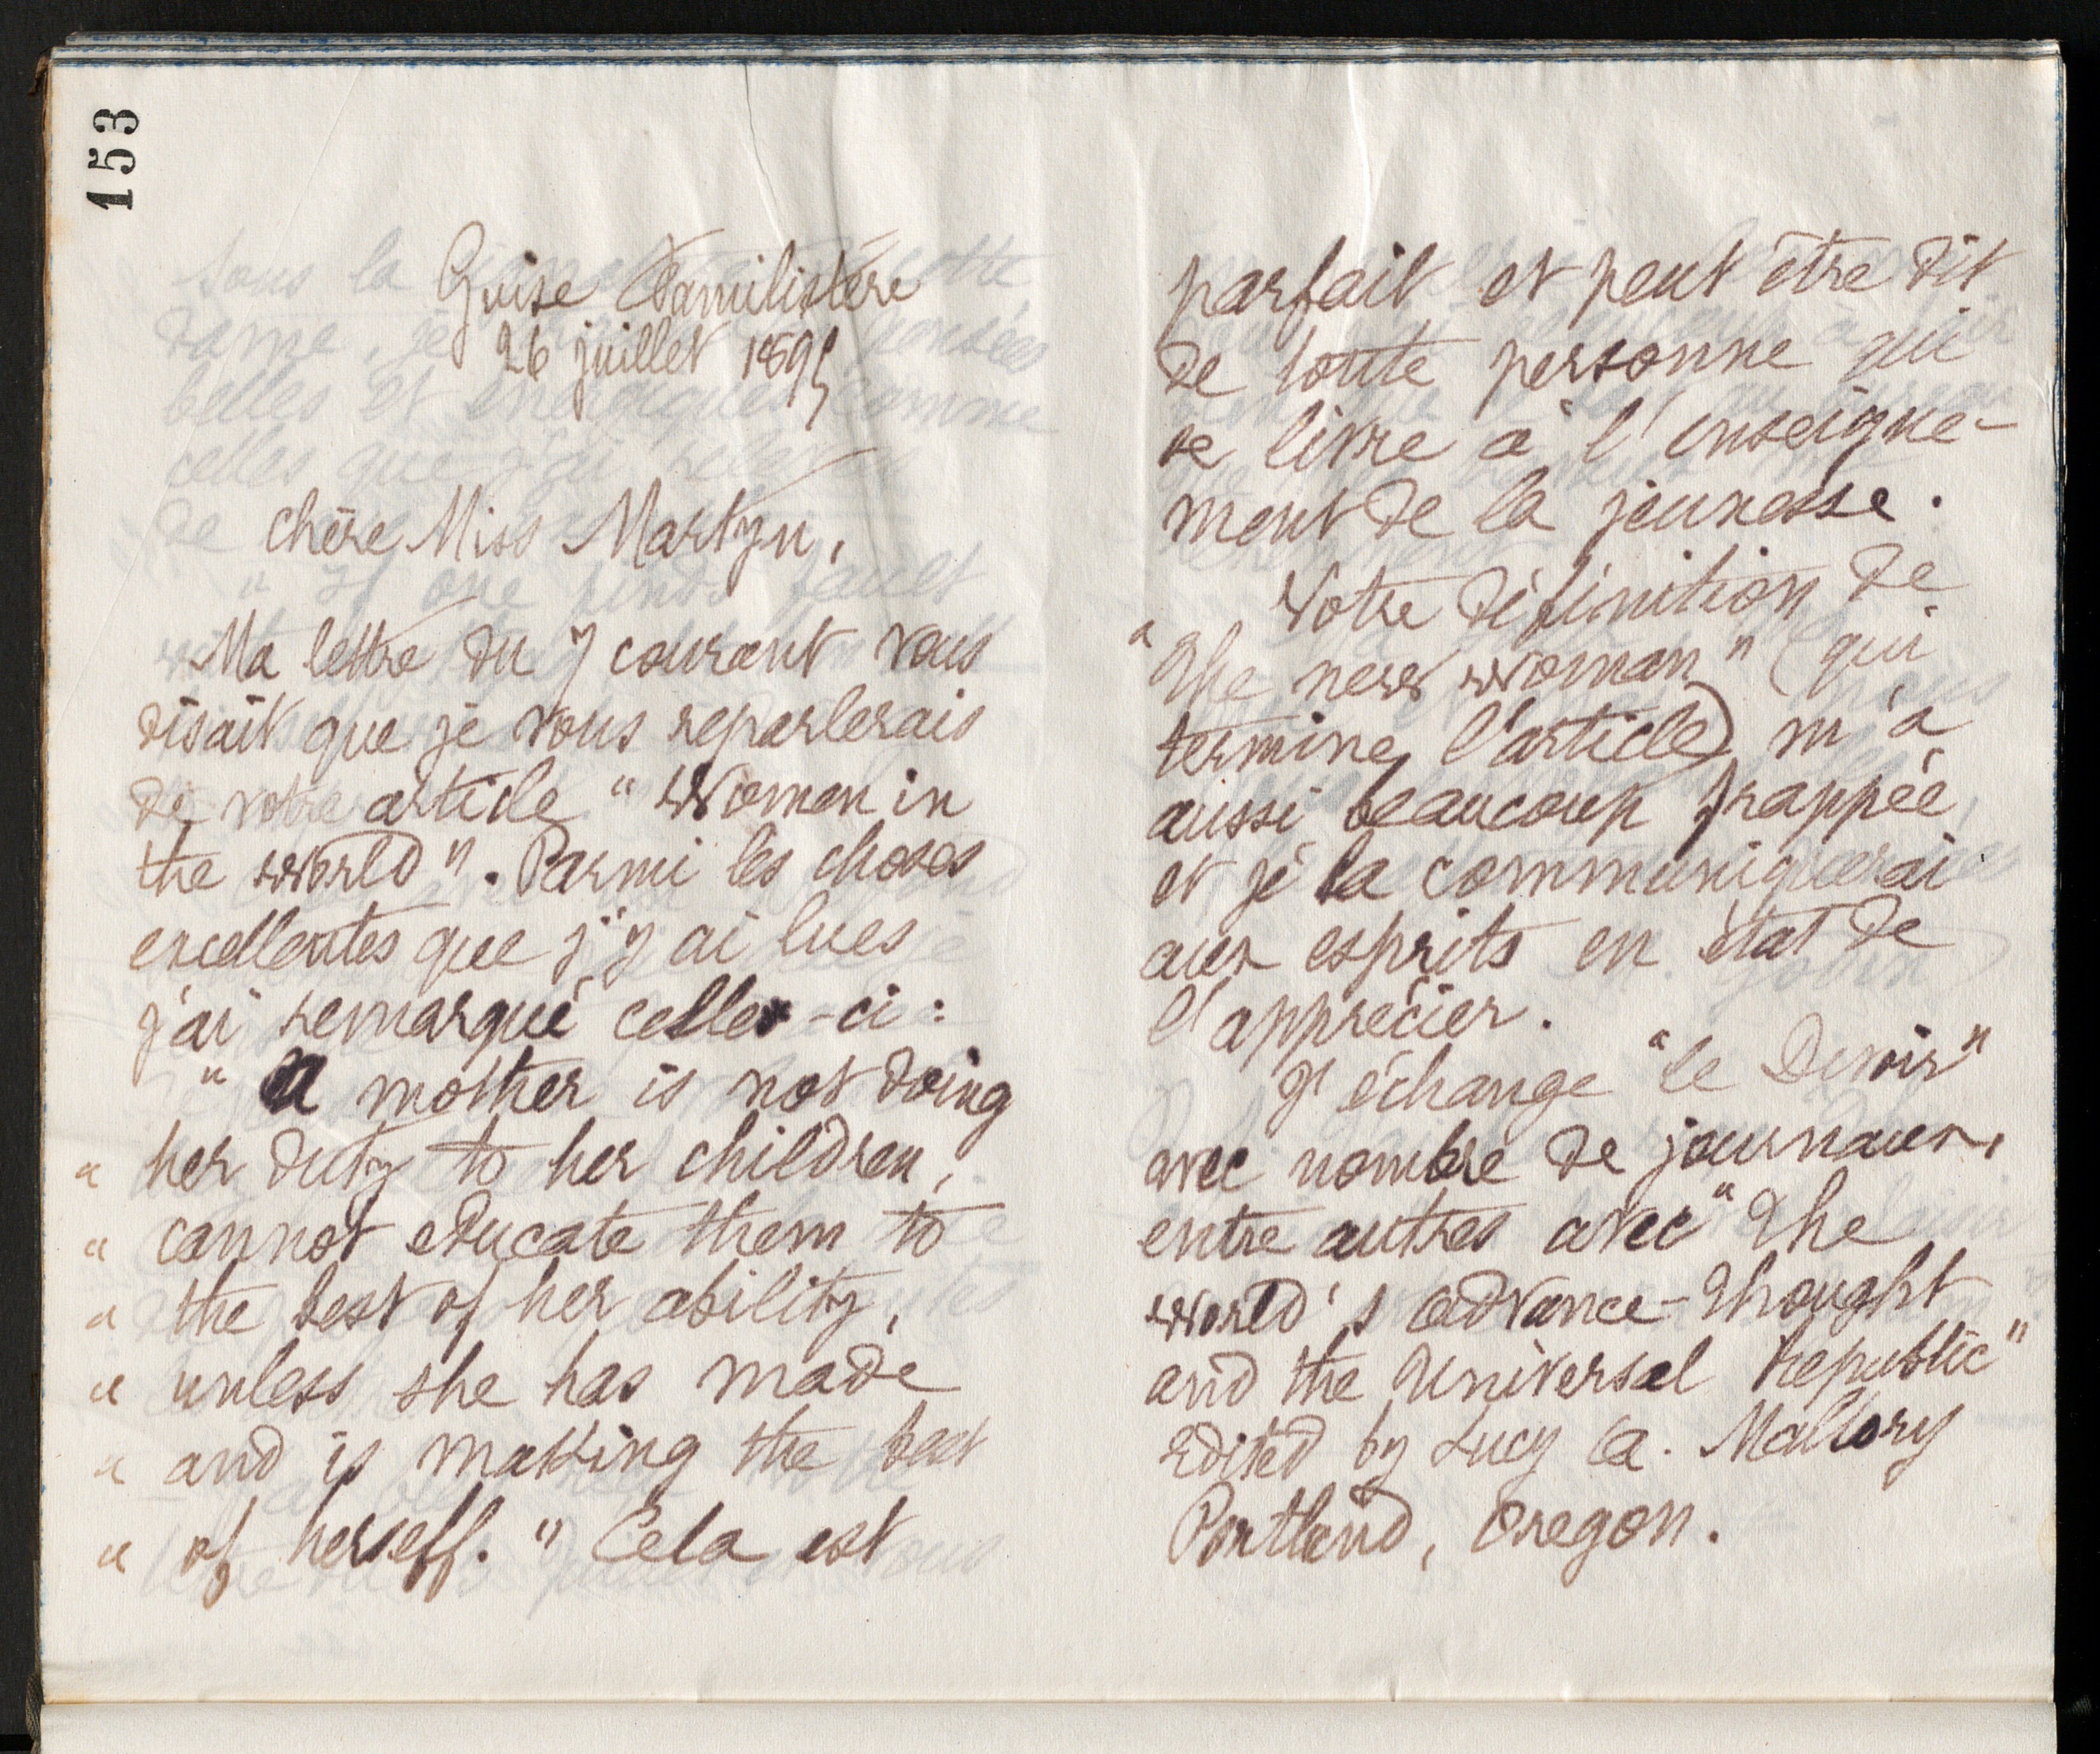 153
Guise Familistère
26 juillet 1895
chère Miss Martyn,
Ma lettre du 7 courant vous
disait que je vous reparlerais
de votre article "Woman in
the World". Parmi les choses
excellentes que j'y ai lues
j'ai remarqué celle-ci :
" A mother is not doing
" her duty to her children,
" cannot educate them to
" the best of her ability,
" unless she has made
" and is making the best
" of herself." Cela est
parfait et peut être dit
de toute personne qui
se livre à l'enseigne-
ment de la jeunesse.
Votre définition de
"The new woman" (qui
termine l'article) m'a
aussi beaucoup frappée,
et je la communiquerai
aux esprits en état de
l'apprécier.
J'échange "le Devoir"
avec nombre de journaux,
entre autres avec "The
World's advance-Thought
and the Universal Republic"
Edited by Lucy A. Mallory
Portland, Oregon.